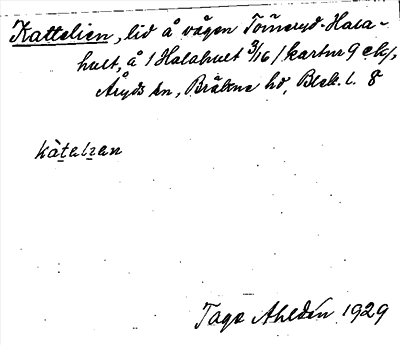 Kattelien, lid å vägen Toineryd-Hala-
hult, å 1 Halahult 3/16 /kartnr 9 ek/,
Åryds sn, Bräkne hd, Blek. l. 8
kàtalian
Tage Ahldén 1929